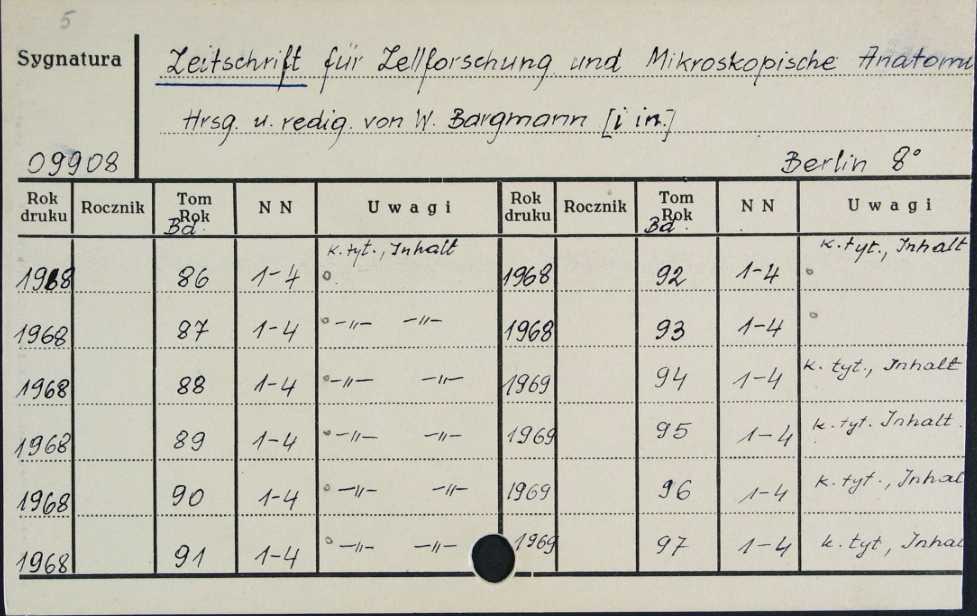 5
Sygnatura Zeitschrift für Zellforschung und Mikroskopische Anatomi
Hrsg. u. redig. von W. Bargmann [i in.]
09908 Berlin 8°
Rok druku Rocznik Tom Rok Bd. NN Uwagi Rok druku Rocznik Tom Rok Bd. NN Uwagi
1968 86 1-4 k. tyt., Inhalt 1968 92 1-4 k. tyt., Inhalt
1968 87 1-4 -〃- -〃- 1968 93 1-4
1968 88 1-4 -〃- -〃- 1969 94 1-4 k. tyt., Inhalt
1968 89 1-4 -〃- -〃- 1969 95 1-4 k. tyt. Inhalt
1968 90 1-4 -〃- -〃- 1969 96 1-4 k. tyt., Inhal
1968 91 1-4 -〃- -〃- 1969 97 1-4 k. tyt, Inhal